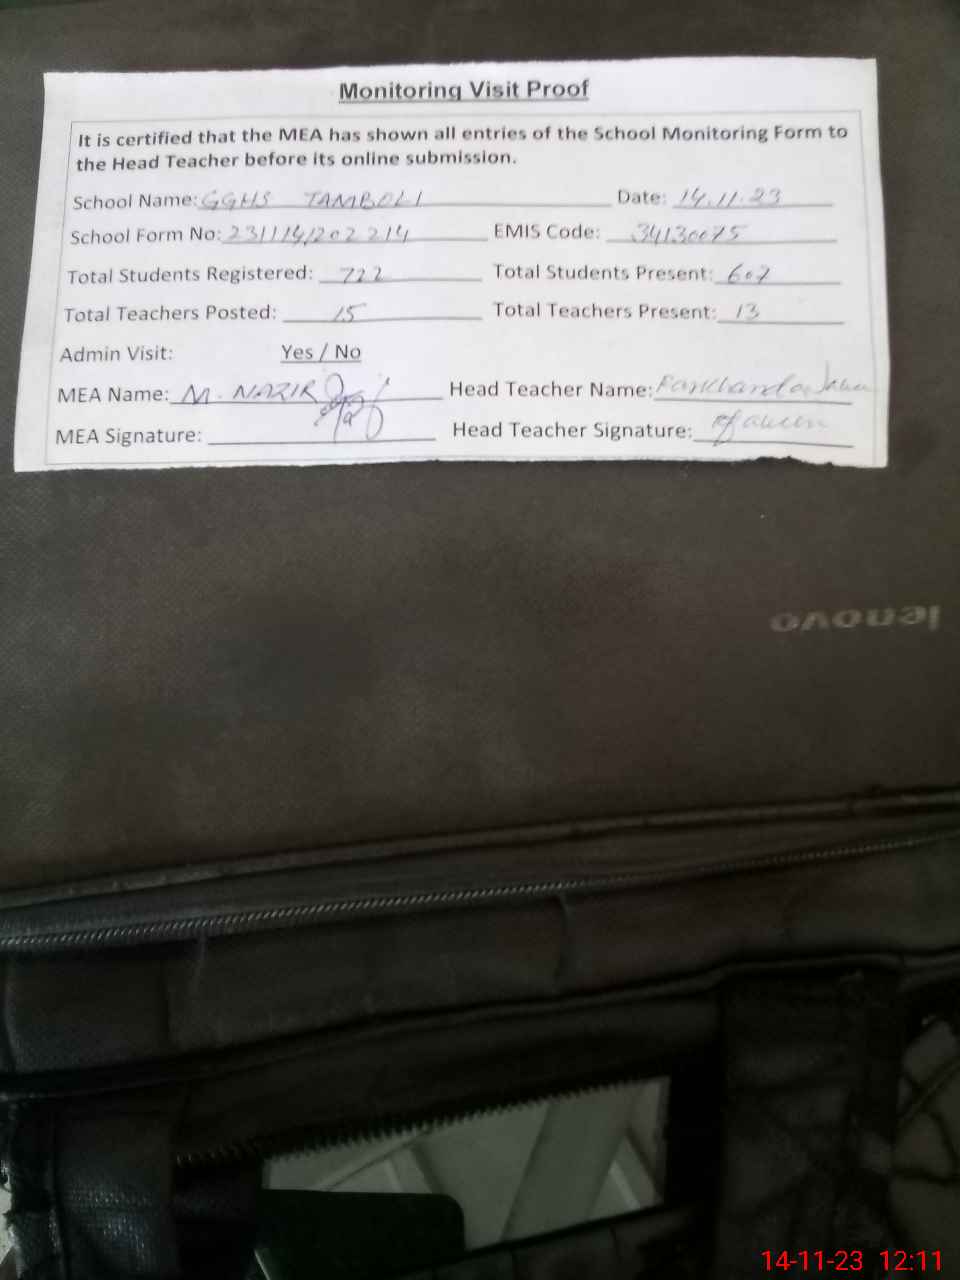 Monitoring Visit Proof
It is certified that the MEA has shown all entries of the School Monitoring Form to
the Head Teacher before its online submission.
School Name: GGHS TAMBOLI Date: 14.11.23
School Form No: 231114202214 EMIS Code: 34130075
Total Students Registered: 722 Total Students Present: 607
Total Teachers Posted: 15 Total Teachers Present: 13
Admin Visit: Yes / No
MEA Name: M. NAZIR Head Teacher Name: Farkhanda
MEA Signature: Head Teacher Signature:
lenovo
14-11-23 12:11